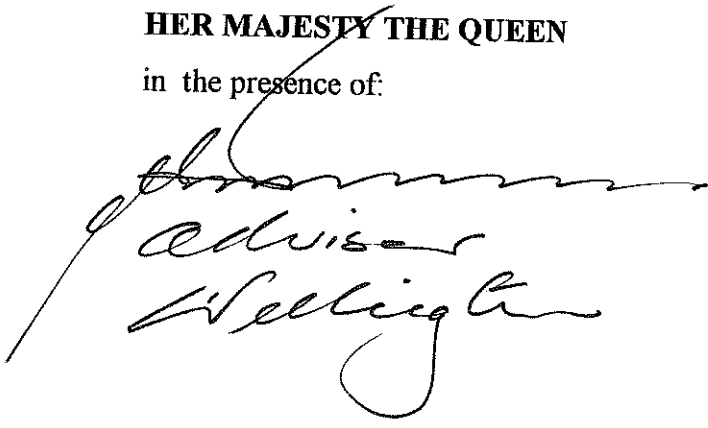 HER MAJESTY THE QUEEN
in the presence of:
adviser
Wellington